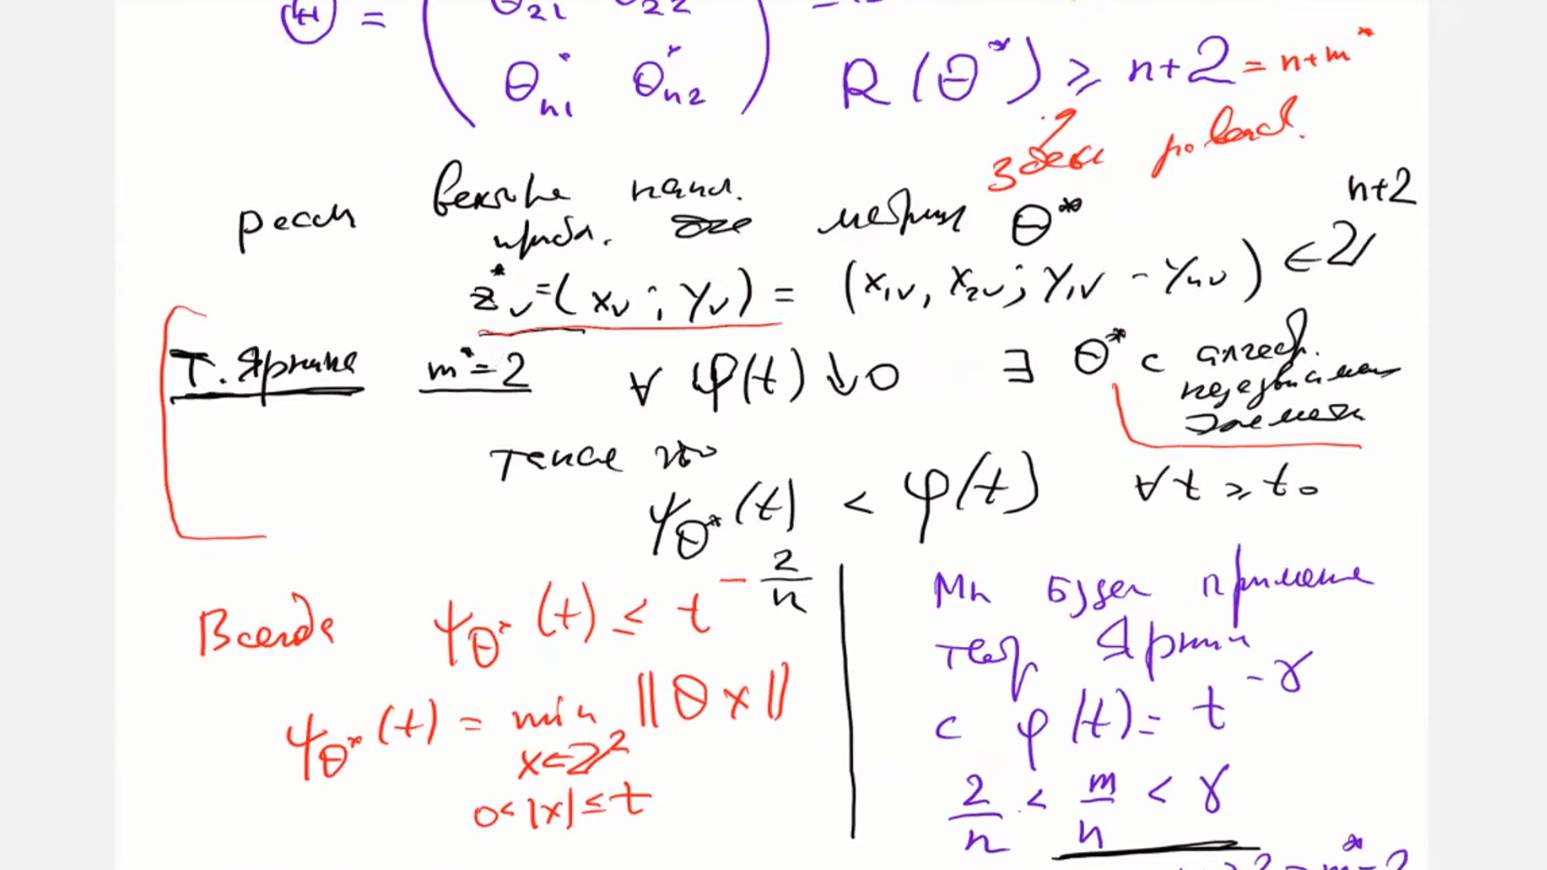 Θ = ( θ21 θ22
θ*n1 θ*n2 ) R(Θ*) ≥ n+2 = n+m*
здесь равенст.
рассм вектора наил. прибл. матрицы Θ*
z*ν = (xν ; yν) = (x1ν, x2ν; y1ν - ynν) ∈ ℤ^{n+2}
Т. Ярника m* = 2 ∀ φ(t) ↓ 0 ∃ Θ* с алгебр. независимыми элемен
такая что
ψΘ*(t) < φ(t) ∀ t ≥ t0
Всегда ψΘ*(t) ≤ t^{-2/n}
ψΘ*(t) = min ||Θx||
x∈ℤ²
0<|x|≤t
Мы будем применять
теор Ярник
с φ(t) = t^{-γ}
2/n < m/n < γ